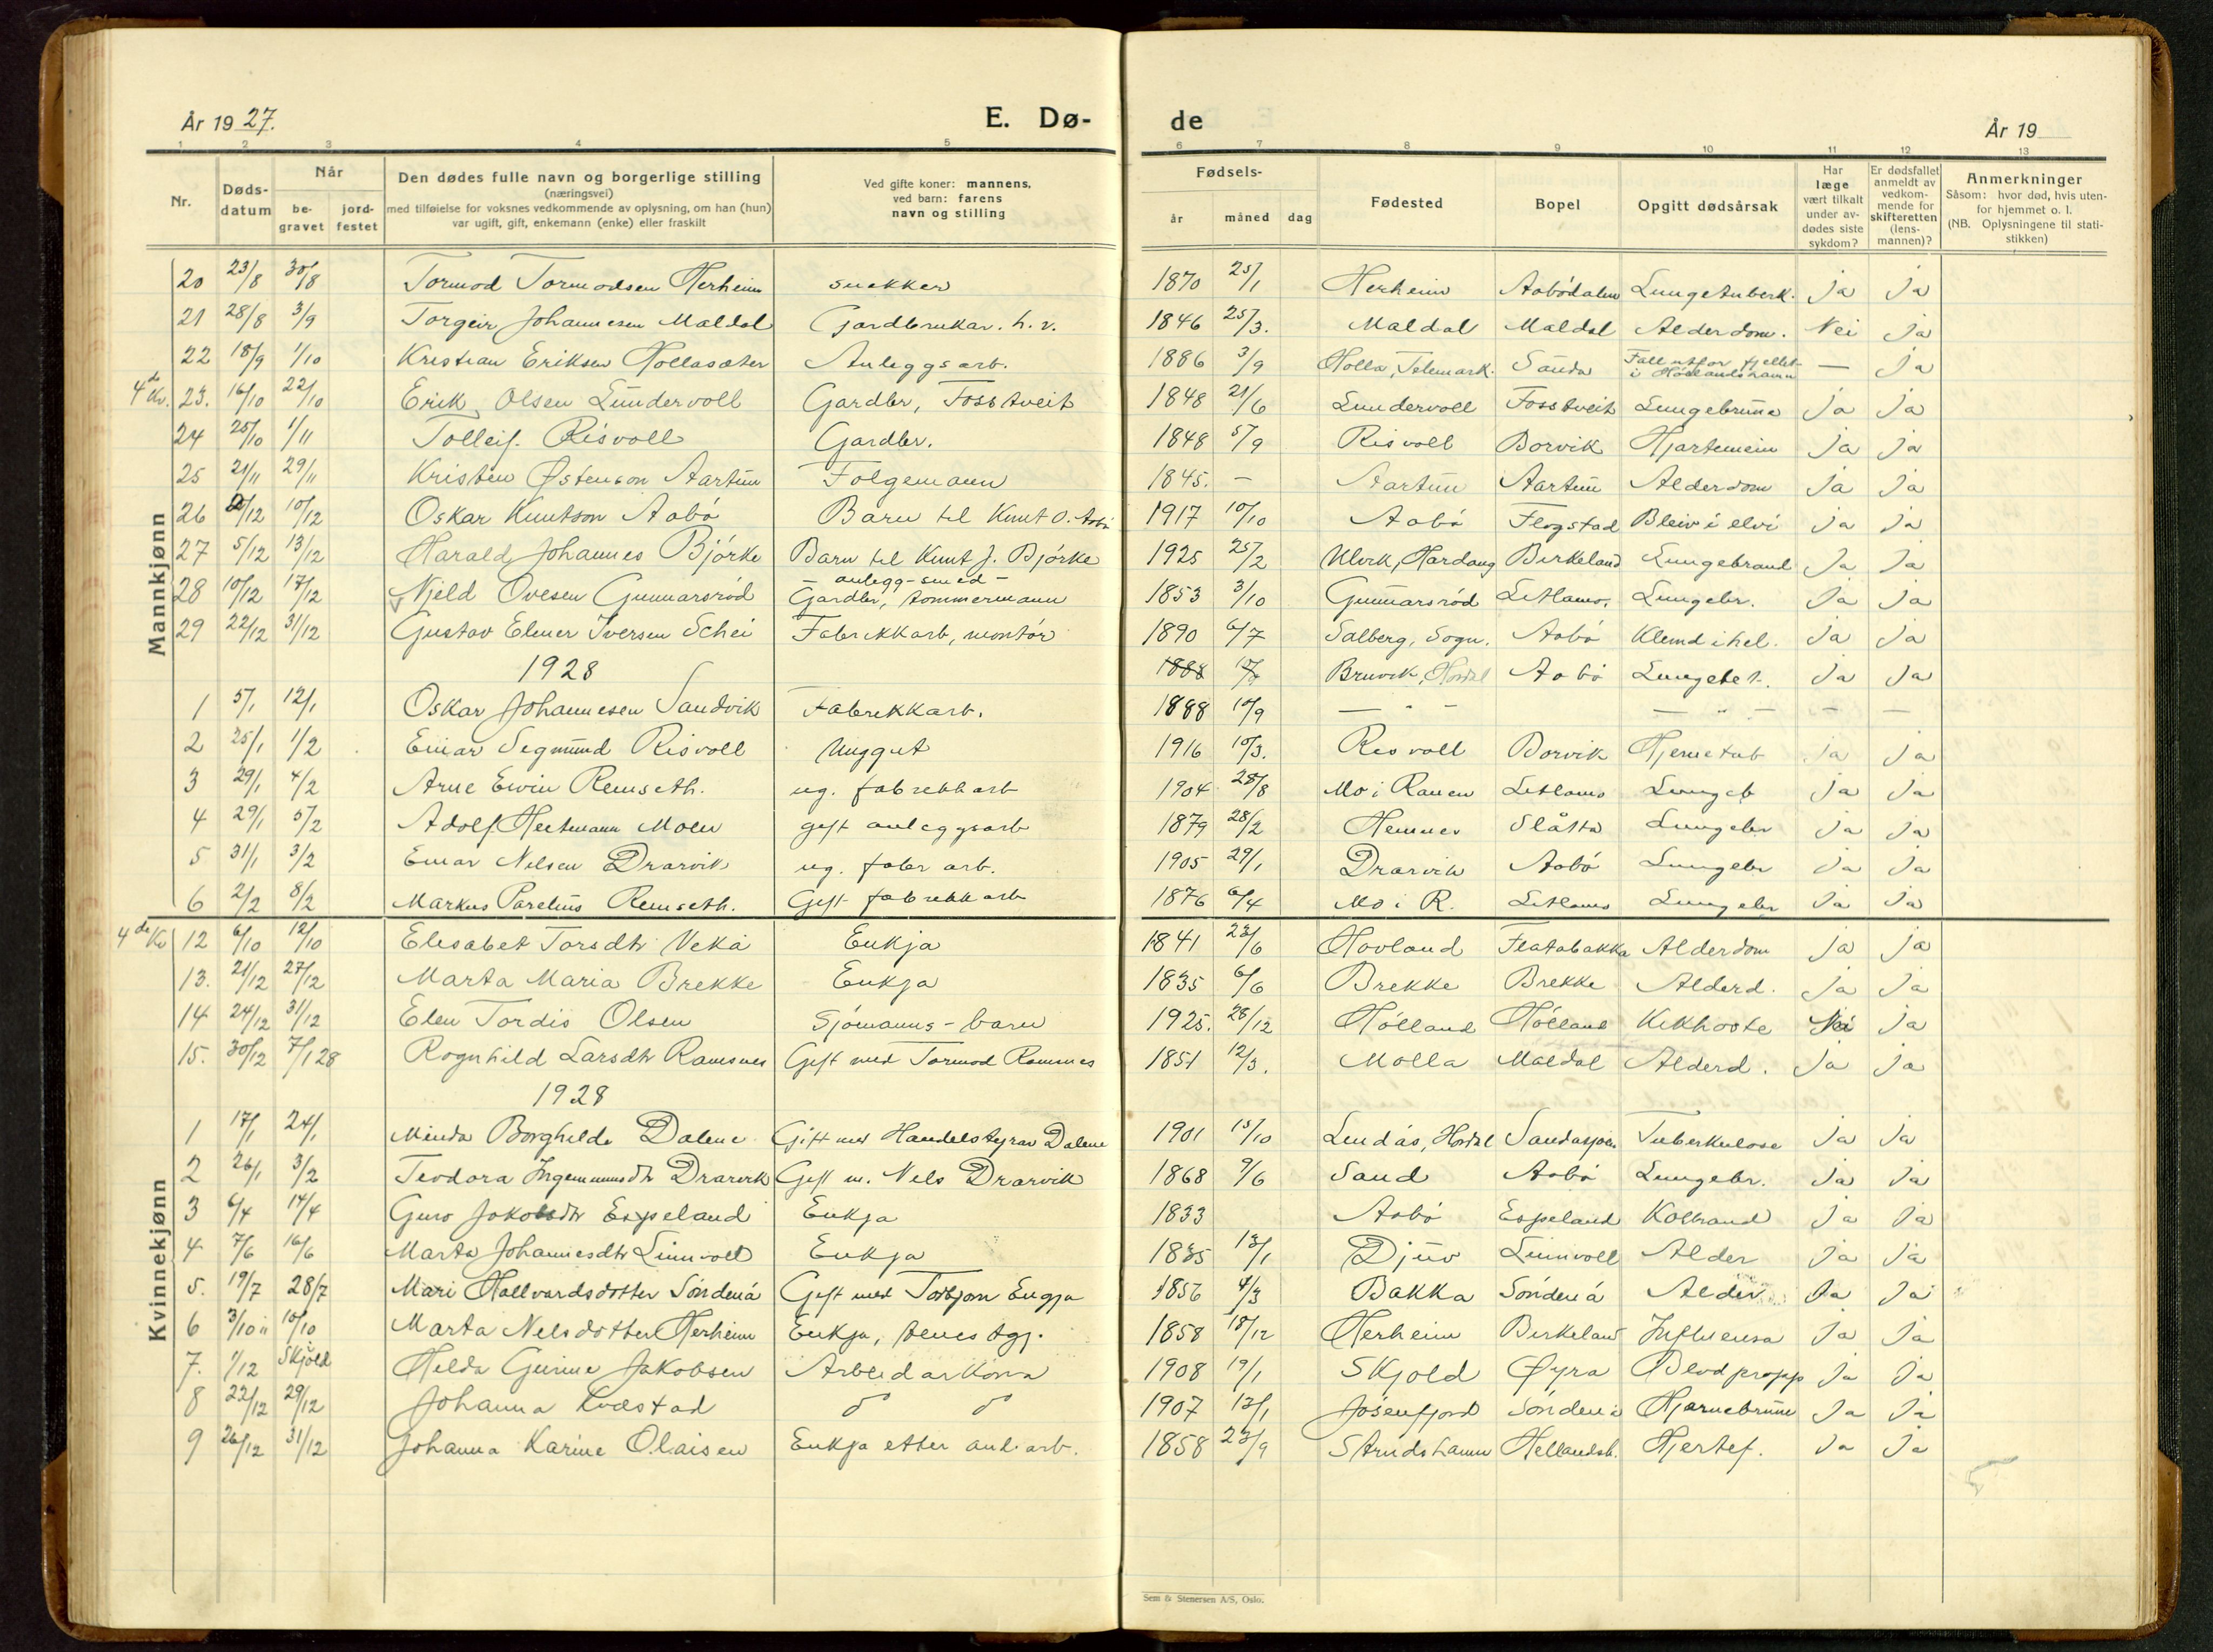 År 1927.
E. Dø-
1 2 3 4 5
Nr.
Døds-
datum
Når
be-
gravet
jord-
festet
Den dødes fulle navn og borgerlige stilling
(næringsvei)
med tilføielse for voksnes vedkommende av oplysning, om han (hun)
var ugift, gift, enkemann (enke) eller fraskilt
Ved gifte koner: mannens,
ved barn: farens
navn og stilling
Mannkjønn
20 23/8 30/8 Tormod Tormodsen Herheim snekker
21 28/8 3/9 Torgeir Johannesen Maldal Gardbrukar. h. v.
22 18/9 1/10 Kristian Eriksen Hollasæter Anleggsarb.
4de Kv. 23. 16/10 22/10 Erik Olsen Lundervoll Gardbr, Fosstveit
24 25/10 1/11 Tolleif. Risvoll Gardbr.
25 21/11 29/11 Kristen Østenson Aartun Folgemann
26 2/12 10/12 Oskar Knutson Aabö Barn til Knut O. Aabö
27 5/12 13/12 Harald Johannes Björke Barn til Knut J. Björke
– anlegg-smed –
28 10/12 17/12 Njeld Ovesen Gunnarsröd Gardbr, tommermann
29 22/12 31/12 Gustav Elmer Iversen Schei Fabrikkarb, montör
1928
1 5/1 12/1 Oskar Johannesen Sandvik Fabrikkarb.
2 25/1 1/2 Einar Sigmund Risvoll Unggut
3 29/1 4/2 Arne Ervin Remseth. ug. fabrikkarb
4 29/1 5/2 Adolf. Hertmann Moen gift anleggsarb
5 31/1 3/2 Einar Nilsen Drarvik ug. fabr arb.
6 2/2 8/2 Markus Parelius Remseth. Gift fabrikkarb
Kvinnekjønn
4de Kv 12 6/10 12/10 Elisabet Torsdtr Vekå Enkja
13. 21/12 27/12 Marta Maria Brekke Enkja
14 24/12 31/12 Elen Tordis Olsen Sjömanns-barn
15. 30/12 7/1 28 Rognhild Larsdtr Ramsnes Gift med Tormod Ramnes
1928
1 17/1 24/1 Minda Borghilde Dalene Gift med Handelstyrar Dalene
2 26/1 3/2 Teodora Ingemunsdtr Drarvik Gift m. Nils Drarvik
3 6/4 14/4 Guro Jakobsdtr Espeland Enkja
4 7/6 16/6 Marta Johannesdtr Linnvoll Enkja
5. 19/7 28/7 Mari Hallvardsdotter Söndenå Gift med Torbjorn Engja
6 3/10 10/10 Marta Nelsdotter Herheim Enkja,
7. 1/12 Skjold Hilda Gurine Jakobsen Arbeidarkona
8 22/12 29/12 Johanna Kvæstad
9 26/12 31/12 Johanna Karine Olaisen Enkja etter anl. arb.
de
År 19
6 7 8 9 10 11 12 13
Fødsels-
år måned dag
Fødested
Bopel
Opgitt dødsårsak
Har
læge
vært tilkalt
under av-
dødes siste
sykdom?
Er dødsfallet
anmeldt av
vedkom-
mende for
skifteretten
(lens-
mannen)?
Anmerkninger
Såsom: hvor død, hvis uten-
for hjemmet o. l.
(NB. Oplysningene til stati-
stikken)
1870 25/1 Herheim Aabödalen Lungetuberk. ja ja
1846 25/3. Maldal Maldal Alderdom. Nei ja
1886 3/9 Holla, Telemark. Sanda Fall utfor fjellet i Höllandshamn — ja
1848 21/6 Lundervoll Fosstveit Lungebruna ja ja
1848 5/9 Risvoll Borvik Hjartemein ja ja
1845. – Aartun Aartun Alderdom ja ja
1917 10/10 Aabö Flogstad Bleiv i elvi ja ja
1925 25/2 Ulvik, Hardang Birkeland Lungebrand Ja Ja
1853 3/10 Gunnarsröd Litlamo. Lungebr. Ja Ja
1890 6/7 Salberg, Sogn. Aabö Klemd ihel. ja Ja
1888 Bruvik, Hordal Aabö Lungebet. Ja Ja
1888 10/9 — " — — " — — —
1916 10/3. Risvoll Borvik Hjernetub ja ja
1904 28/8 Mo i Ranen Litlamo Lungeb ja ja
1879 28/2 Hemner Slåtta Lungebr ja ja
1905 29/1 Drarvik Aabö Lungebr Ja Ja
1876 6/4 Mo i R. Litlamo Lungebr Ja Ja
1841 23/6 Hovland Flatabakka Alderdom ja ja
1835 6/6 Brekke Brekke Alderd. ja Ja
1925. 28/12 Hölland Hölland Kikhoste Nei Ja
1851 12/3. Molla Maldal Alderd. Ja Ja
1901 13/10 Lindås, Hordal Sandasjöen Tuberkulose Ja Ja
1868 9/6 Sand Aabö Lungebr. Ja Ja
1833 Aabö Espeland Kolbrand Ja Ja
1835 13/1 Djuv Linnvoll Alder Ja Ja
1856 4/3 Bakka Söndenå Alder Ja Ja
1858 18/12 Herheim Birkeland Influensa Ja Ja
1908 19/1 Skjold Øyra Blodpropp Ja Ja
1907 13/1 Jösenfjord Söndenå Hjarnebruna Ja Ja
1858 23/9 Strudshamn Hellandsb. Hjertef. Ja Ja
Sem & Stenersen A/S, Oslo.